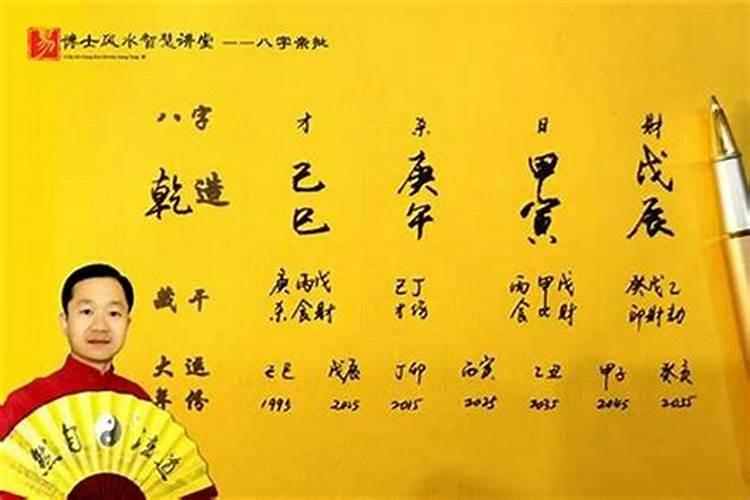 易 博士风水智慧讲堂 ——八字亲批
八字 才 杀 日 财
乾造 己巳 庚午 甲寅 戊辰
藏干 庚丙戊 己丁 丙甲戊 癸戊乙
杀食财 才伤 食比财 印财劫
大运 己巳 戊辰 丁卯 丙寅 乙丑 甲子 癸亥
年份 1995 2005 2015 2025 2035 2045 2055
然自法道